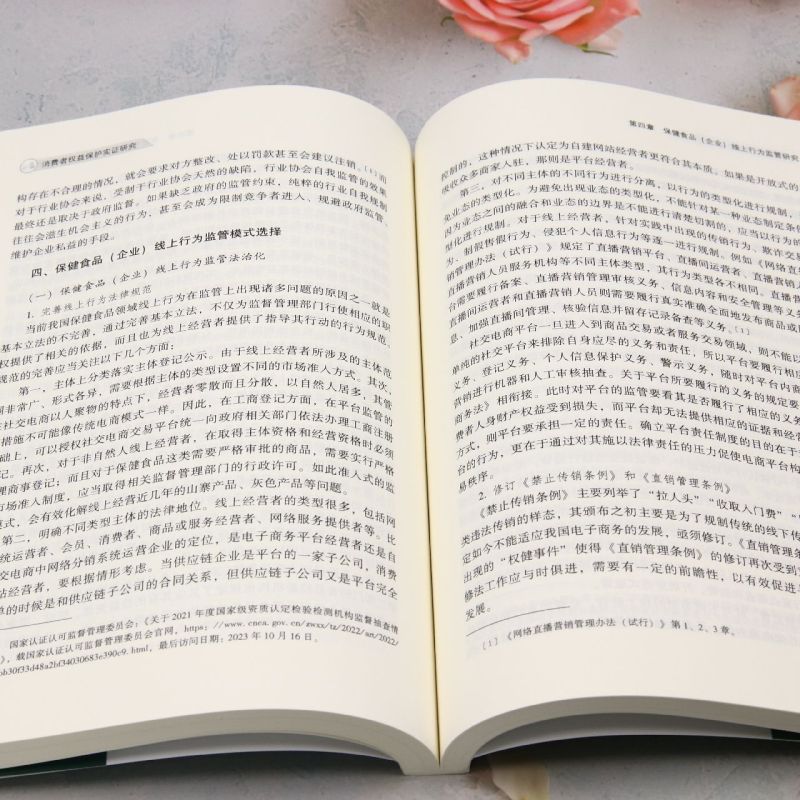 消费者权益保护实证研究
构存在不合理的情况，就会要求对方整改、处以罚款甚至会建议注销。[1]而
对于行业协会来说，受制于行业协会天然的缺陷，行业协会自我监管的效果
最终还是取决于政府监督。如果缺乏政府的监管约束，纯粹的行业自我规制
往往会滋生机会主义的行为，甚至会成为限制竞争者进入、规避政府监管、
维护企业私益的手段。
四、保健食品（企业）线上行为监管模式选择
（一）保健食品（企业）线上行为监管法治化
1. 完善线上行为法律规范
当前我国保健食品领域线上行为在监管上出现诸多问题的原因之一就是
基本立法的不完善，通过完善基本立法，不仅为监督管理部门行使相应的职
权提供了相关的依据，而且也为线上经营者提供了指导其行动的行为规范。
规范的完善应当关注以下几个方面：
第一，主体上分类落实主体登记公示。由于线上经营者所涉及的主体范
围非常广、形式各异，需要根据主体的类型设置不同的市场准入方式。其次，
社交电商以人聚物的特点下，经营者零散而且分散，以自然人居多，其管
措施不可能像传统电商模式一样。因此，在工商登记方面，在平台监管的
础上，可以授权社交电商交易平台统一向政府相关部门依法办理工商注册
记。再次，对于非自然人线上经营者，在取得主体资格和经营资格时必须
理商事登记，而且对于保健食品这类需要严格审批的商品，需要实行严格
市场准入制度，应当取得相关监督管理部门的行政许可。如此准入式的监
模式，会有效化解线上经营近几年的山寨产品、灰色产品等问题。
第二，明确不同类型主体的法律地位。线上经营者的类型很多，包括网
统运营者、会员、消费者、商品或服务经营者、网络服务提供者等。比
交电商中网络分销系统运营企业的定位，是电子商务平台经营者还是自
站经营者，要根据情形考虑。当供应链企业是平台的一家子公司，消费
单的时候是和供应链子公司的合同关系，但供应链子公司又是平台完全
国家认证认可监督管理委员会：《关于 2021 年度国家级资质认定检验检测机构监督抽查情
》，载国家认证认可监督管理委员会官网，https：//www. cnca. gov. cn/zwxx/tz/2022/art/2022/
bb30f33d48a2bf34030683e390c9. html，最后访问日期：2023 年 10 月 16 日。
第四章 保健食品（企业）线上行为监管研究
控制的，这种情况下认定为自建网站经营者更符合其本质。如果是开放式的
吸收众多商家入驻，那则是平台经营者。
第三，对不同主体的不同行为进行分离，以行为的类型化进行规制，
免业态的类型化。为避免出现业态的类型化，不能针对某一种业态制定条例
因为业态之间的融合和业态的边界是不能进行清楚切割的，应当以行为的
型化进行规制。对于线上经营者，针对实践中出现的传销行为、欺诈交易
为、制假售假行为、侵犯个人信息行为等逐一进行规制。例如《网络直播
销管理办法（试行）》规定了直播营销平台、直播间运营者、直播营销人
直播营销人员服务机构等不同主体类型，其行为类型各不相同。直播营
台需要履行备案、直播营销管理审核义务、信息内容和安全管理等义务
直播间运营者和直播营销人员则需要履行真实准确全面地发布商品或服
息、加强直播间管理、核验信息并留存记录备查等义务。[1]
社交电商平台一旦进入到商品交易或者服务交易领域，则不能以
单纯的社交平台来排除自身应尽的义务和责任，所以平台要履行相应
义务、登记义务、个人信息保护义务、警示义务，随时对平台内商
营销进行机器和人工审核抽查。关于平台所要履行的义务的规定要
商务法》相衔接。此时对平台的监管要看其是否履行了相应的义务
费者人身财产权益受到损失，而平台却无法提供相应的证据和经营
方式，则平台要承担一定的责任。确立平台责任制度的目的在于
台的行为，更在于通过对其施以法律责任的压力促使电商平台构
易秩序。
2. 修订《禁止传销条例》和《直销管理条例》
《禁止传销条例》主要列举了“拉人头”“收取入门费”“
类违法传销的样态，其颁布之初主要是为了规制传统的线下传
定如今不能适应我国电子商务的发展，或须修订。《直销管理
出现的“权健事件”使得《直销管理条例》的修订再次受到
修法工作应与时俱进，需要有一定的前瞻性，以有效促进
发展。
[1]《网络直播营销管理办法（试行）》第 1、2、3 章。